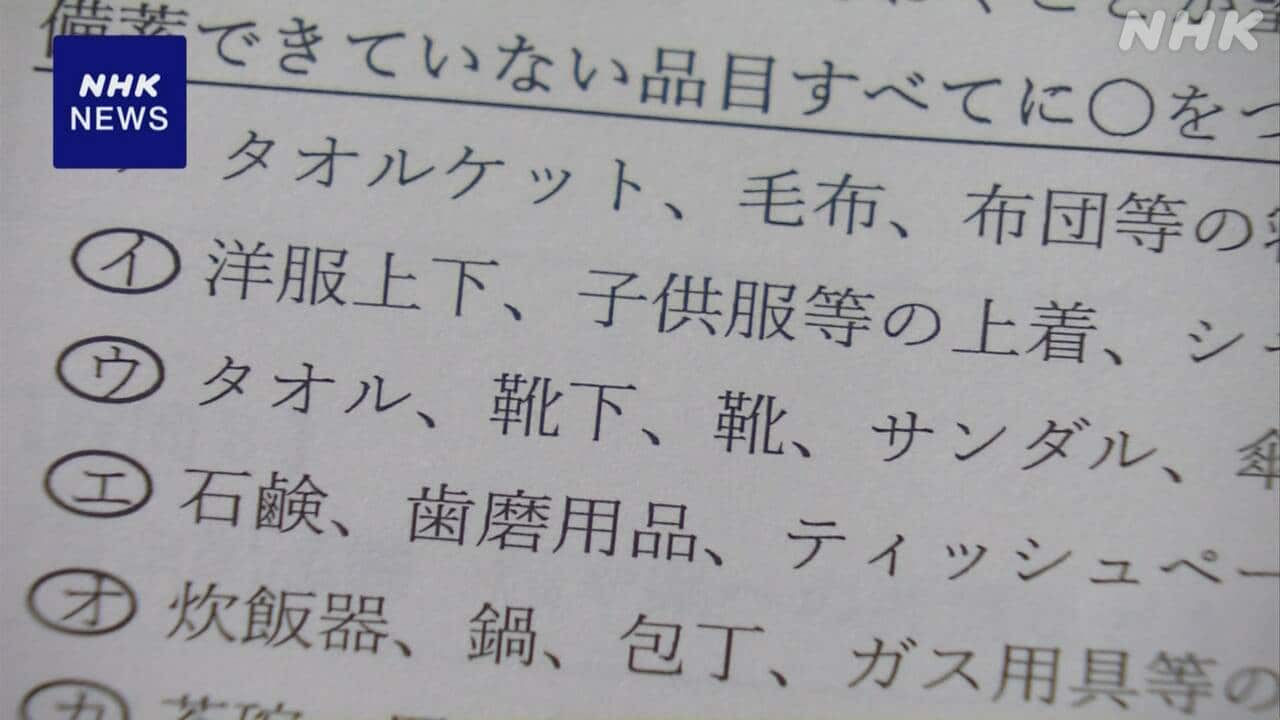 NHK
NHK
NEWS
備蓄できていない品目すべてに○をつ
タオルケット、毛布、布団等の
イ 洋服上下、子供服等の上着、シ
ウ タオル、靴下、靴、サンダル、傘
エ 石鹸、歯磨用品、ティッシュペー
オ 炊飯器、鍋、包丁、ガス用具等の
カ